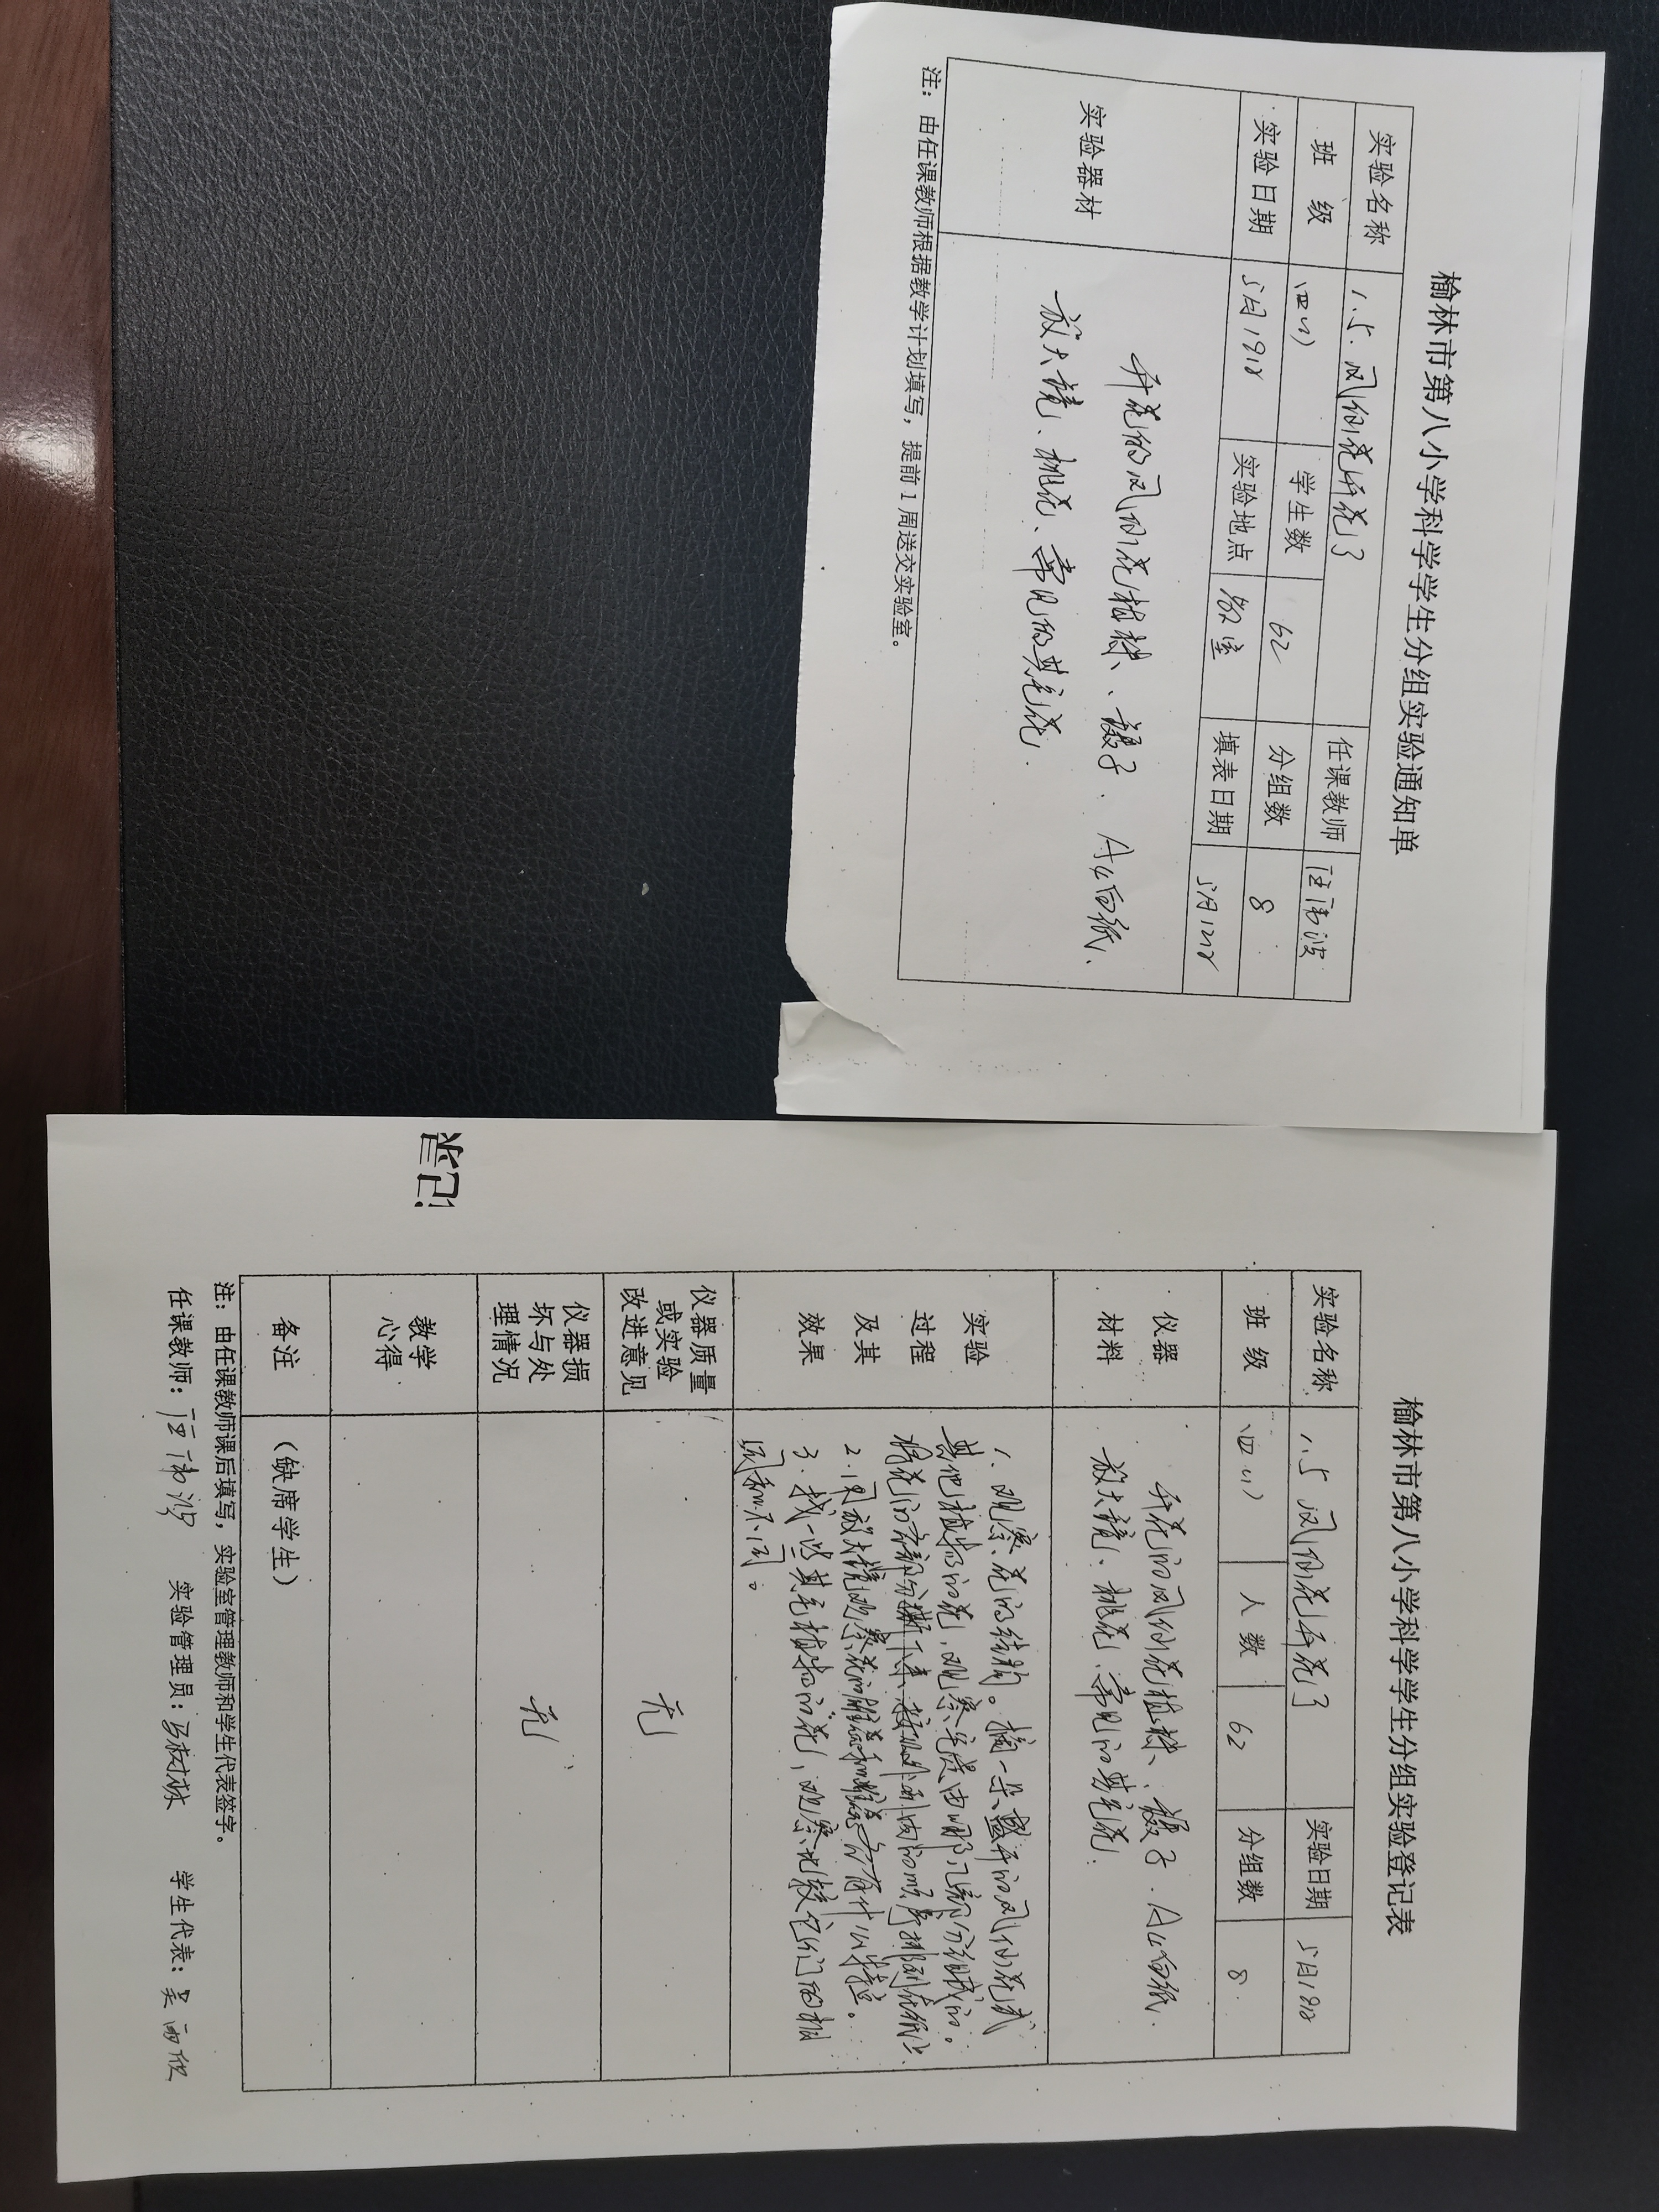 榆林市第八小学科学学生分组实验通知单
实验名称 1.5. 凤仙花开花了 任课教师 汪沛波
班 级 四(1) 学生数 62 分组数 8
实验日期 5月19日 实验地点 教室 填表日期 5月12日
实验器材
开花的凤仙花植株、镊子、A4白纸、
放大镜、桃花、常见的其它花.
注：由任课教师根据教学计划填写，提前1周送交实验室。
榆林市第八小学科学学生分组实验登记表
实验名称 1.5 凤仙花开花了 实验日期 5月19日
班 级 四(1) 人 数 62 分组数 8
仪器
材料
开花的凤仙花植株、镊子、A4白纸.
放大镜、桃花、常见的其它花.
实验
过程
及其
效果
1. 观察花的结构。摘一朵盛开的凤仙花或
其他植物的花,观察它是由哪几部分组成的。
将花的各部分撕下来,按从外到内的顺序排列在纸上.
2. 用放大镜观察花的雄蕊和雌蕊各有什么特点。
3. 找一些其它植物的花,观察比较它们的相
同和不同。
仪器质量
或实验
改进意见
无
仪器损
坏与处
理情况
无
教学
心得
备注 (缺席学生)
注：由任课教师课后填写，实验室管理教师和学生代表签字。
任课教师： 汪沛波 实验管理员： 学生代表：